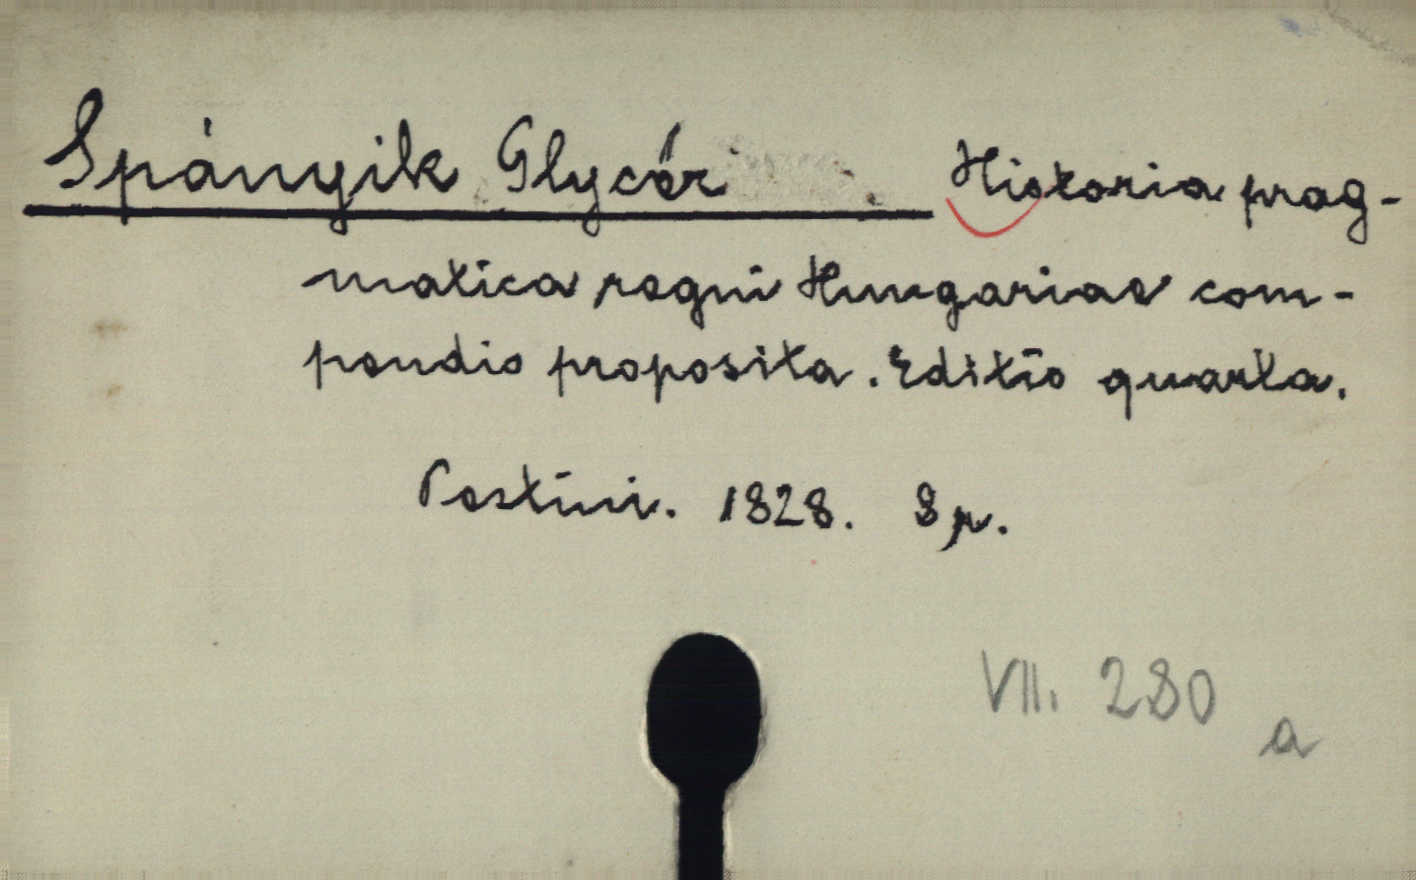 Spányik Glycér Historia prag-
matica regni Hungariae com-
pendio proposita. Editio quarta.
Pestini. 1828. 8r.
VII. 280
a